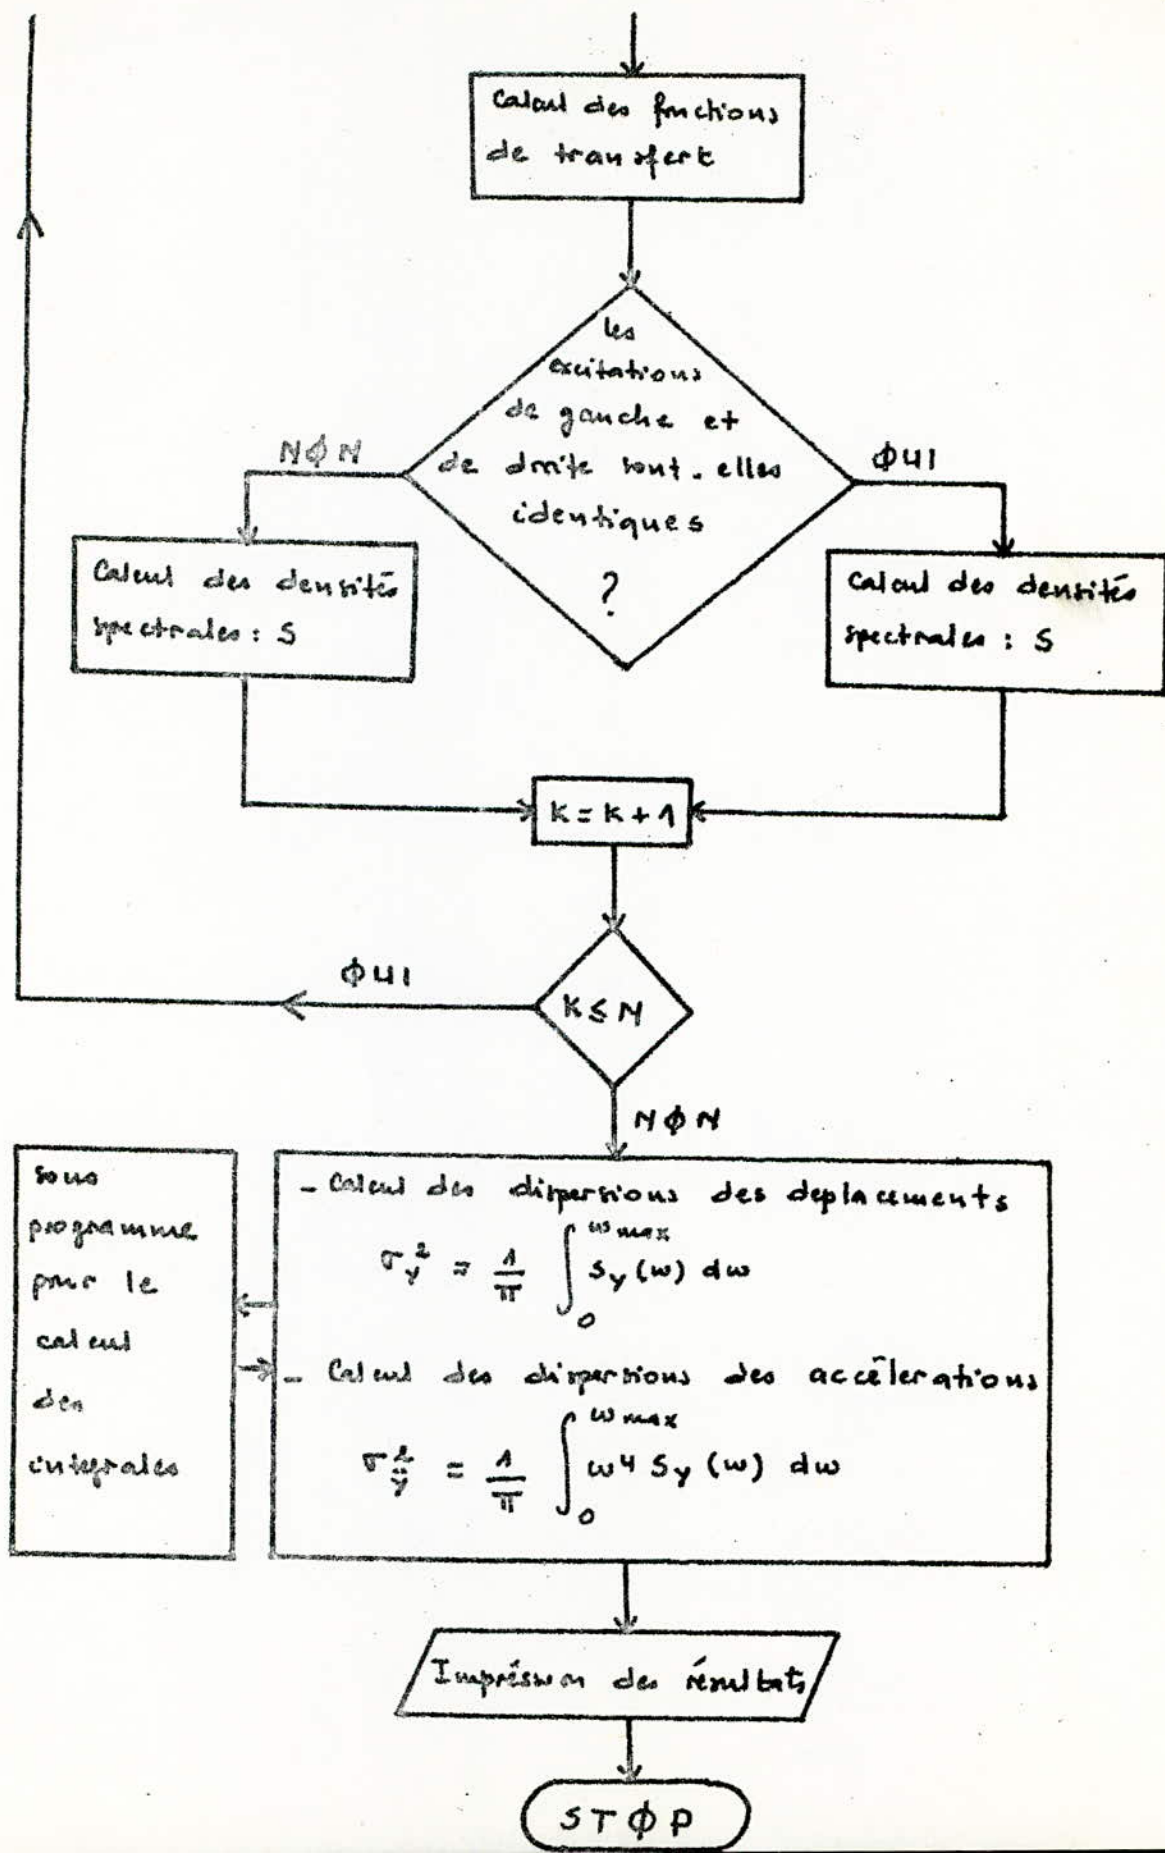 Calcul des fonctions
de transfert
les
excitations
de gauche et
de droite sont-elles
identiques
?
NØN
ØUI
Calcul des densités
spectrales : S
Calcul des densités
spectrales : S
K = K + 1
ØUI
K ≤ N
NØN
sous
programme
pour le
calcul
des
intégrales
- Calcul des dispersions des deplacements
σ_y² = 1/π ∫₀^ω max S_y (ω) dω
- Calcul des dispersions des accélerations
σ_ÿ² = 1/π ∫₀^ω max ω⁴ S_y (ω) dω
Impréssion des résultats
STØP